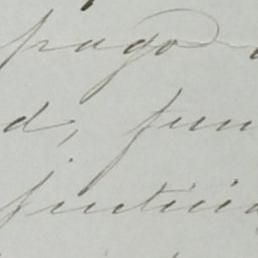 pago
d, fun
justicia